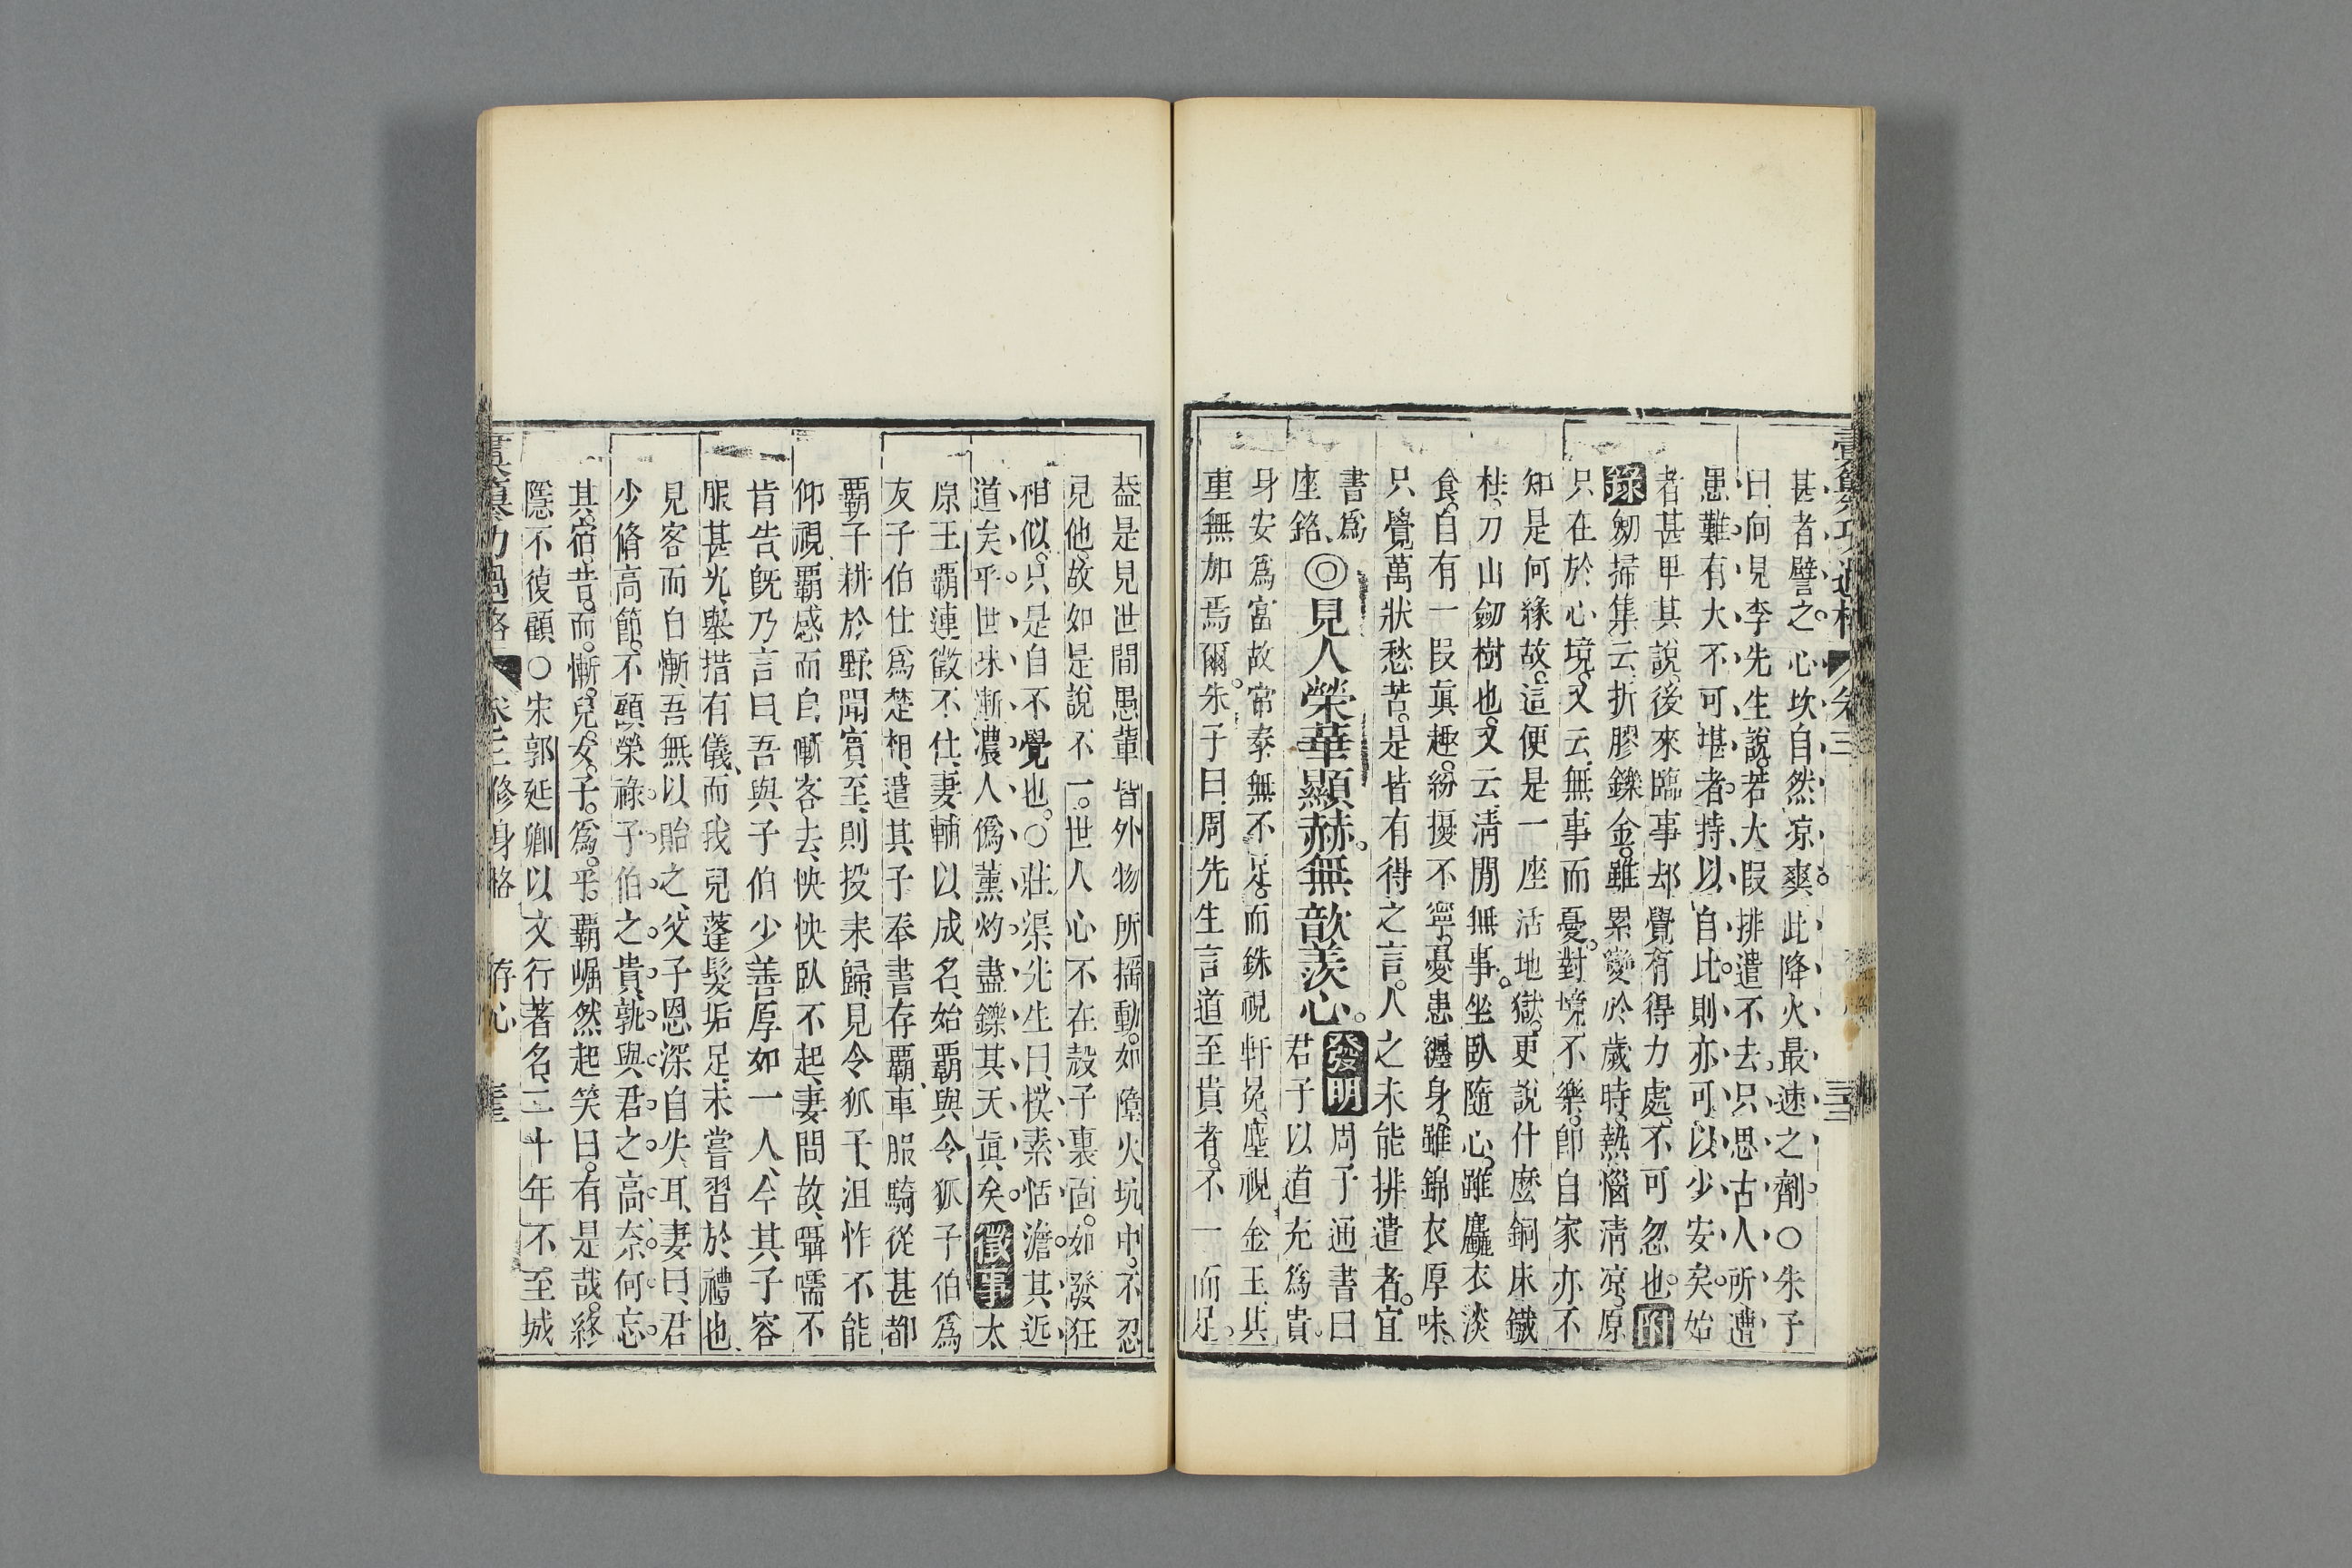 甚者譬之。心坎自然凉爽。此降火最速之劑。○朱子
曰、向見李先生說。若大叚排遣不去。只思古人所遭
患難、有大不可堪者。持以自比。則亦可以少安矣。始
者甚卑其說。後來臨事却覺有得力處。不可忽也。附
錄刼掃集云、折膠鑠金。雖累變於歲時。熱惱淸凉。原
只在於心境。又云、無事而憂。對境不樂。卽自家亦不
知是何緣故。這便是一座活地獄。更說什麽銅床鐵
柱。刀山劒樹也。又云、淸閒無事。坐臥隨心。雖麤衣淡
食。自有一叚眞趣。紛擾不寧。憂患纏身。雖錦衣厚味、
只覺萬狀愁苦。是皆有得之言。人之未能排遣者。宜
書爲
座銘、
◎見人榮華顯赫。無歆羨心。
發明周子通書曰
君子以道充爲貴。
身安爲富。故常泰無不足。而銖視軒冕、塵視金玉、其
重無加焉爾。朱子曰、周先生言道至貴者。不一而足。
蓋是見世間愚輩皆外物所搖動。如隳火坑中。不忍
見他。故如是說不一。世人心不在殼子裏面。如發狂
相似。只是自不覺也。○莊渠先生曰、樸素恬澹。其近
道矣乎。世味漸濃。人僞薰灼。盡鑠其天眞矣。徵事太
原王霸連徵不仕、妻輔以成名、始霸與令狐子伯爲
友、子伯仕爲楚相、遣其子奉書存霸、車服騎從甚都
霸子耕於野、聞賓至、則投耒歸、見令狐子、沮怍不能
仰視、霸感而自慚、客去、怏怏臥不起、妻問故、囁嚅不
肯告、旣乃言曰、吾與子伯少善厚如一人、今其子容
服甚光、擧措有儀、而我兒蓬髮垢足、未嘗習於禮也、
見客而自慚、吾無以貽之、父子恩深、自失耳、妻曰、君
少脩高節。不顧榮祿。子伯之貴。孰與君之高。奈何忘
其宿昔。而慚兒女子。爲乎。霸崛然起笑曰。有是哉。終
隱不復顧○宋郭延卿以文行著名、三十年不至城
卷三
卷三修身格
存心